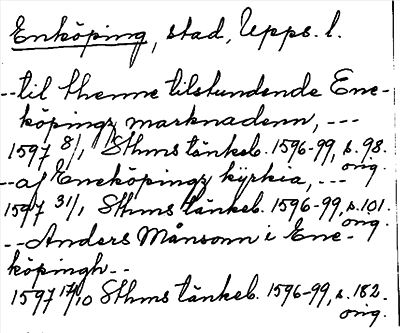 Enköping, stad, Upps. l.
--til thenne tilstundende Ene-
köpingz marknadenn, ---
1597 8/1 Sthms tänkeb. 1596-99, s. 98.
orig.
--af Eneköpingz kyrkia, ---
1597 31/1 Sthms tänkeb. 1596-99, s. 101.
orig.
--Anders Månsonn i Ene-
köpingh--
1597 17/10 Sthms tänkeb. 1596-99, s. 162.
orig.